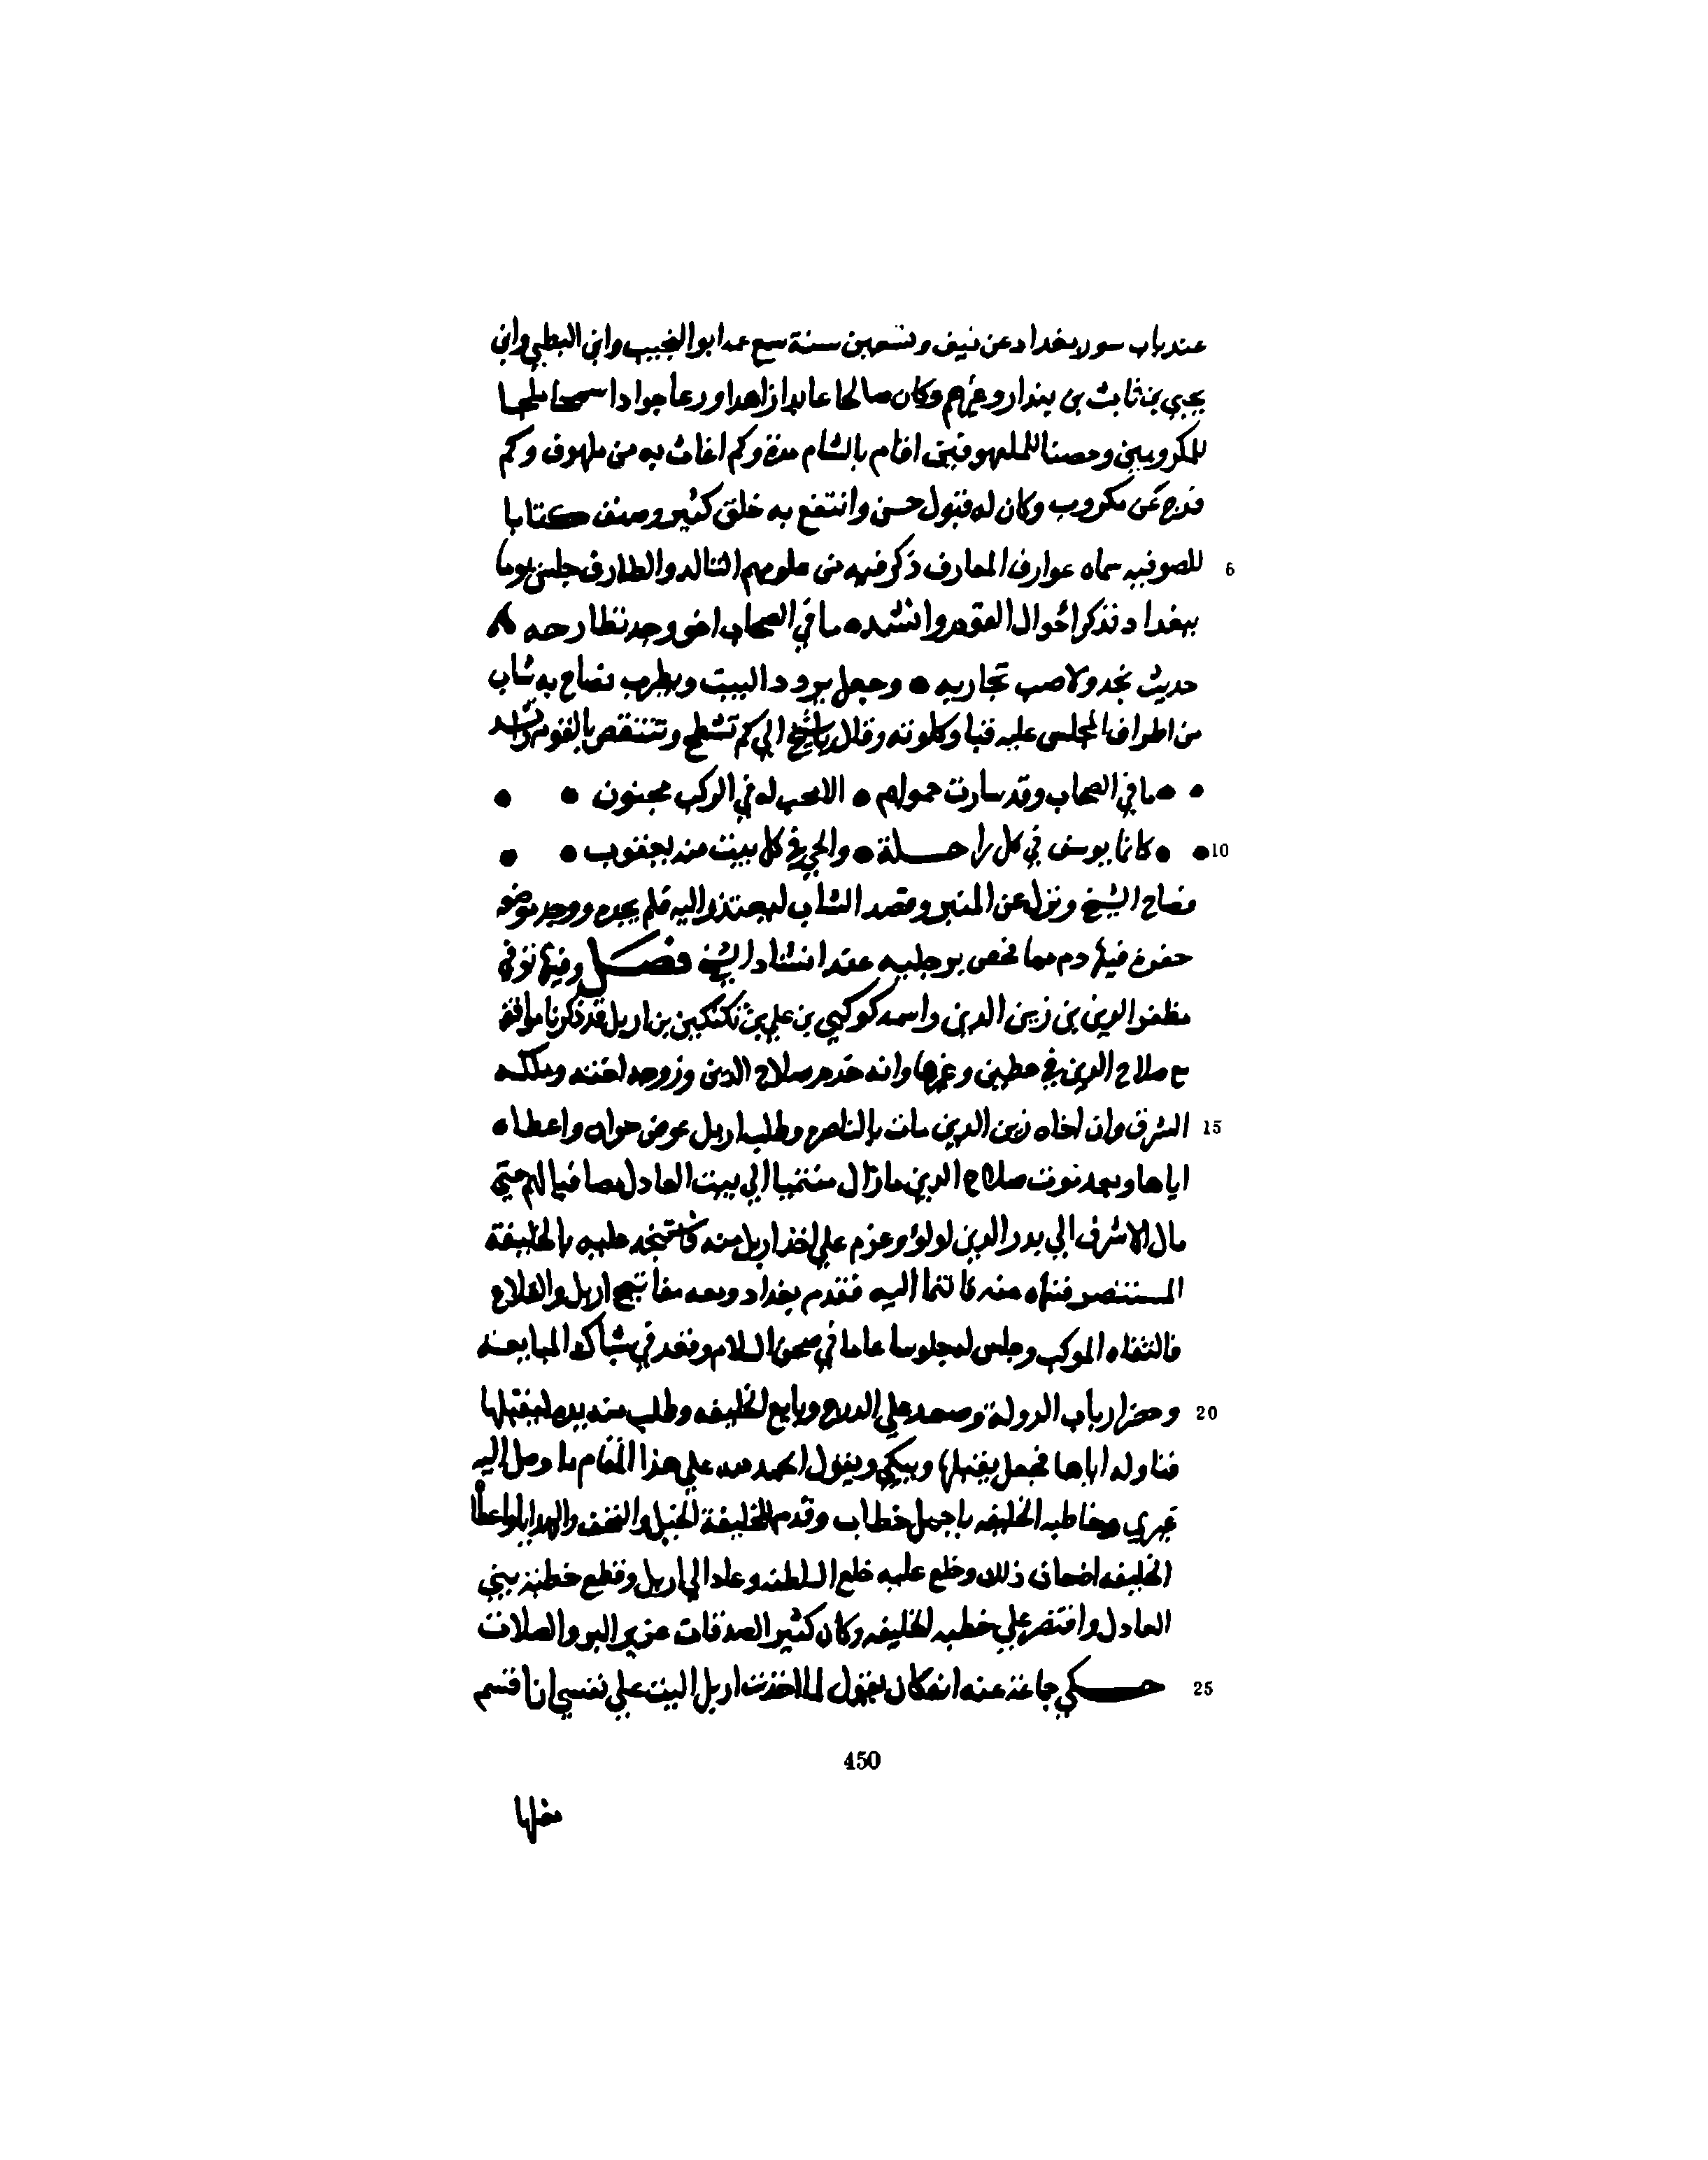 عند باب سور بغداد عن نيف وتسعين سنة سمع عمه ابو النجيب وابن البطي وابن
يحيي بن ثابت بن بندار وغيرهم وكان صالحا عابدا زاهدا ورعا جوادا سمحا ملجا
للمكروبين وحصنا للملهوفين اقام بالشام مدة وكم اغاث به من ملهوف وكم
فرج عن مكروب وكان له قبول حسن وانتفع به خلق كثير وصنف كتابا
للصوفيه سماه عوارف المعارف ذكر فيه من علومهم التالد والطارف جلس يوما 5
ببغداد فذكر احوال القوم وانشد ه ما في الصحاب اخو وجد نطارحه
حديث نجد ولا صب نجاريه ه وجعل يردد البيت ويطرب فصاح به شاب
من اطراف المجلس عليه قبا وكلوته وقال يا شيخ الي كم تشطح وتتنقص بالقوم انشد
ما في الصحاب وقد سارت حمولهم ه الا محب له في الركب محبوب
كانما يوسف في كل راحلة ه والحي في كل بيت منه يعقوب 10
فصاح الشيخ ونزل عن المنبر وقصد الشاب ليعتذر اليه فلم يجده ووجد موضعه
حفرة فيها دم مما فحص برجليه عند انشاد الشيخ فصل وفيها توفي
مظفر الدين بن زين الدين واسمه كوكبي بن علي بن تكتكين بن اربل قد ذكرنا مواقفه
مع صلاح الدين في حطين وغيرها وانه خدم صلاح الدين وزوجه اخته وملكه
الشرق وان اخاه زين الدين مات بالناصره وطلب اربل عوض حران واعطاه 15
اياها وبعد موت صلاح الدين ما زال منتميا الي بيت العادل مصافيا لهم حتي
مال الاشرف الي بدر الدين لولو وعزم علي اخذ اربل منه فاستنجد عليه بالخليفة
المستنصر فنهاه عنه فانتما اليه فقدم بغداد ومعه مفاتيح اربل والقلاع
فالتقاه الموكب وجلس له جلوسا عاما في صحن السلام وقعد في شباك المبايعة
وحضر ارباب الدولة وصعد علي الدرج وبايع الخليفه وطلب منه يده ليقبلها 20
فناوله اياها فجعل يقبلها ويبكي ويقول الحمد لله علي هذا المقام ما وصل اليه
غيري وخاطبه الخليفه باجمل خطاب وقدم للخليفة الخيل والتحف والهدايا واعطا
الخليفه اضعاف ذلك وخلع عليه خلع السلطنه وعاد الي اربل وقطع خطبة بني
العادل واقتصر علي خطبه الخليفه وكان كثير الصدقات غزير البر والصلات
حكي جماعة عنه انه كان يقول لما اخذت اربل اليت علي نفسي ان اقسم 25
450
مغلها